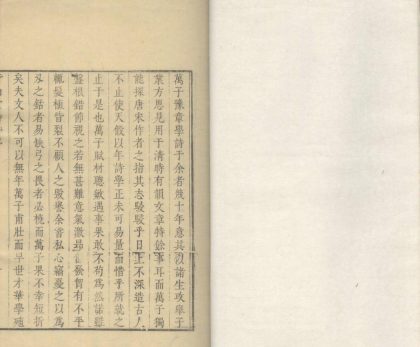 萬子豫章學詩于余者幾十年意其以諸生攻舉子
業方思見用于清時有韻文章特餘事耳而萬子獨
能探唐宋作者之指其志駸駸乎日上不深造古人
不止使天假以年詩學正未可易量而惜乎所就之
止于是也萬子賦材聰敏遇事果敢不苟為然諾雖
盤根錯節視之若無甚難意氣激昂人有不平
輒髮植眥裂不顧人之毀譽余嘗私心竊憂之以為
刃之銛者易缺弓之勁者必橈而萬子果不幸短折
矣夫文人不可以無年萬子甫壯而早世才華學殖